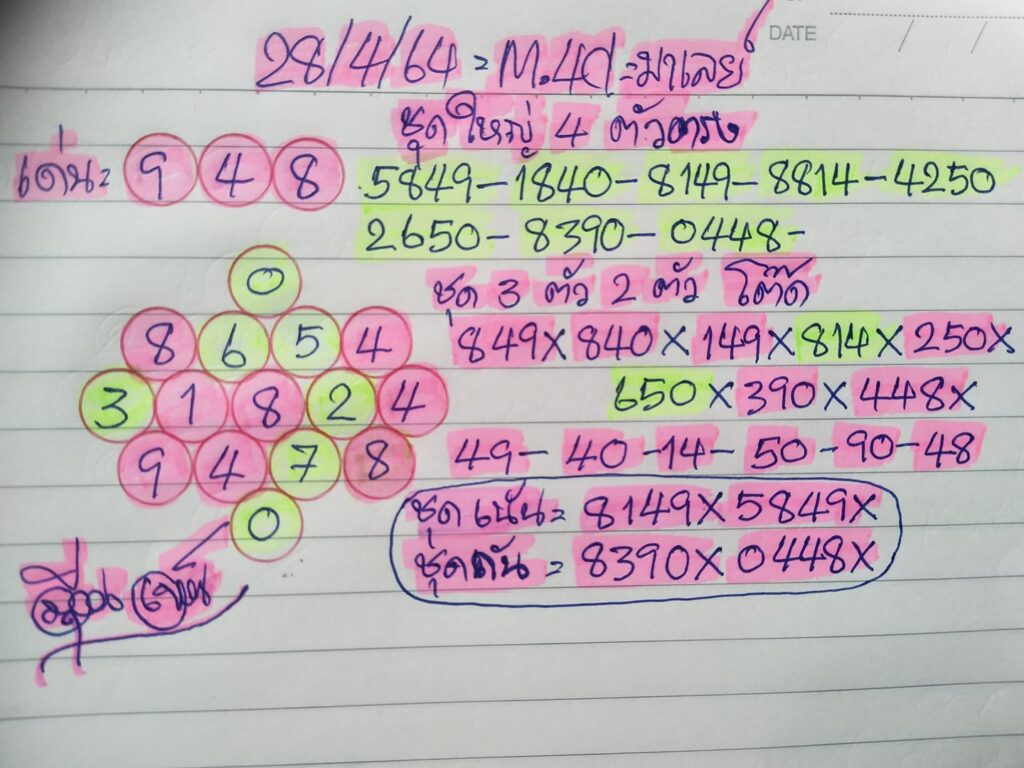 DATE / /
28/4/64 = M.4d = มาเลย์
ชุดใหญ่ 4 ตัวตรง
เด่น = 9 4 8
5849-1840-8149-8814-4250
2650-8390-0448-
ชุด 3 ตัว 2 ตัว โต๊ด
849x840x149x814x250x
650x390x448x
49-40-14-50-90-48
0
8 6 5 4
3 1 8 2 4
9 4 7 8
0
ชุดเน้น = 8149x5849x
ชุดดัน = 8390x0448x